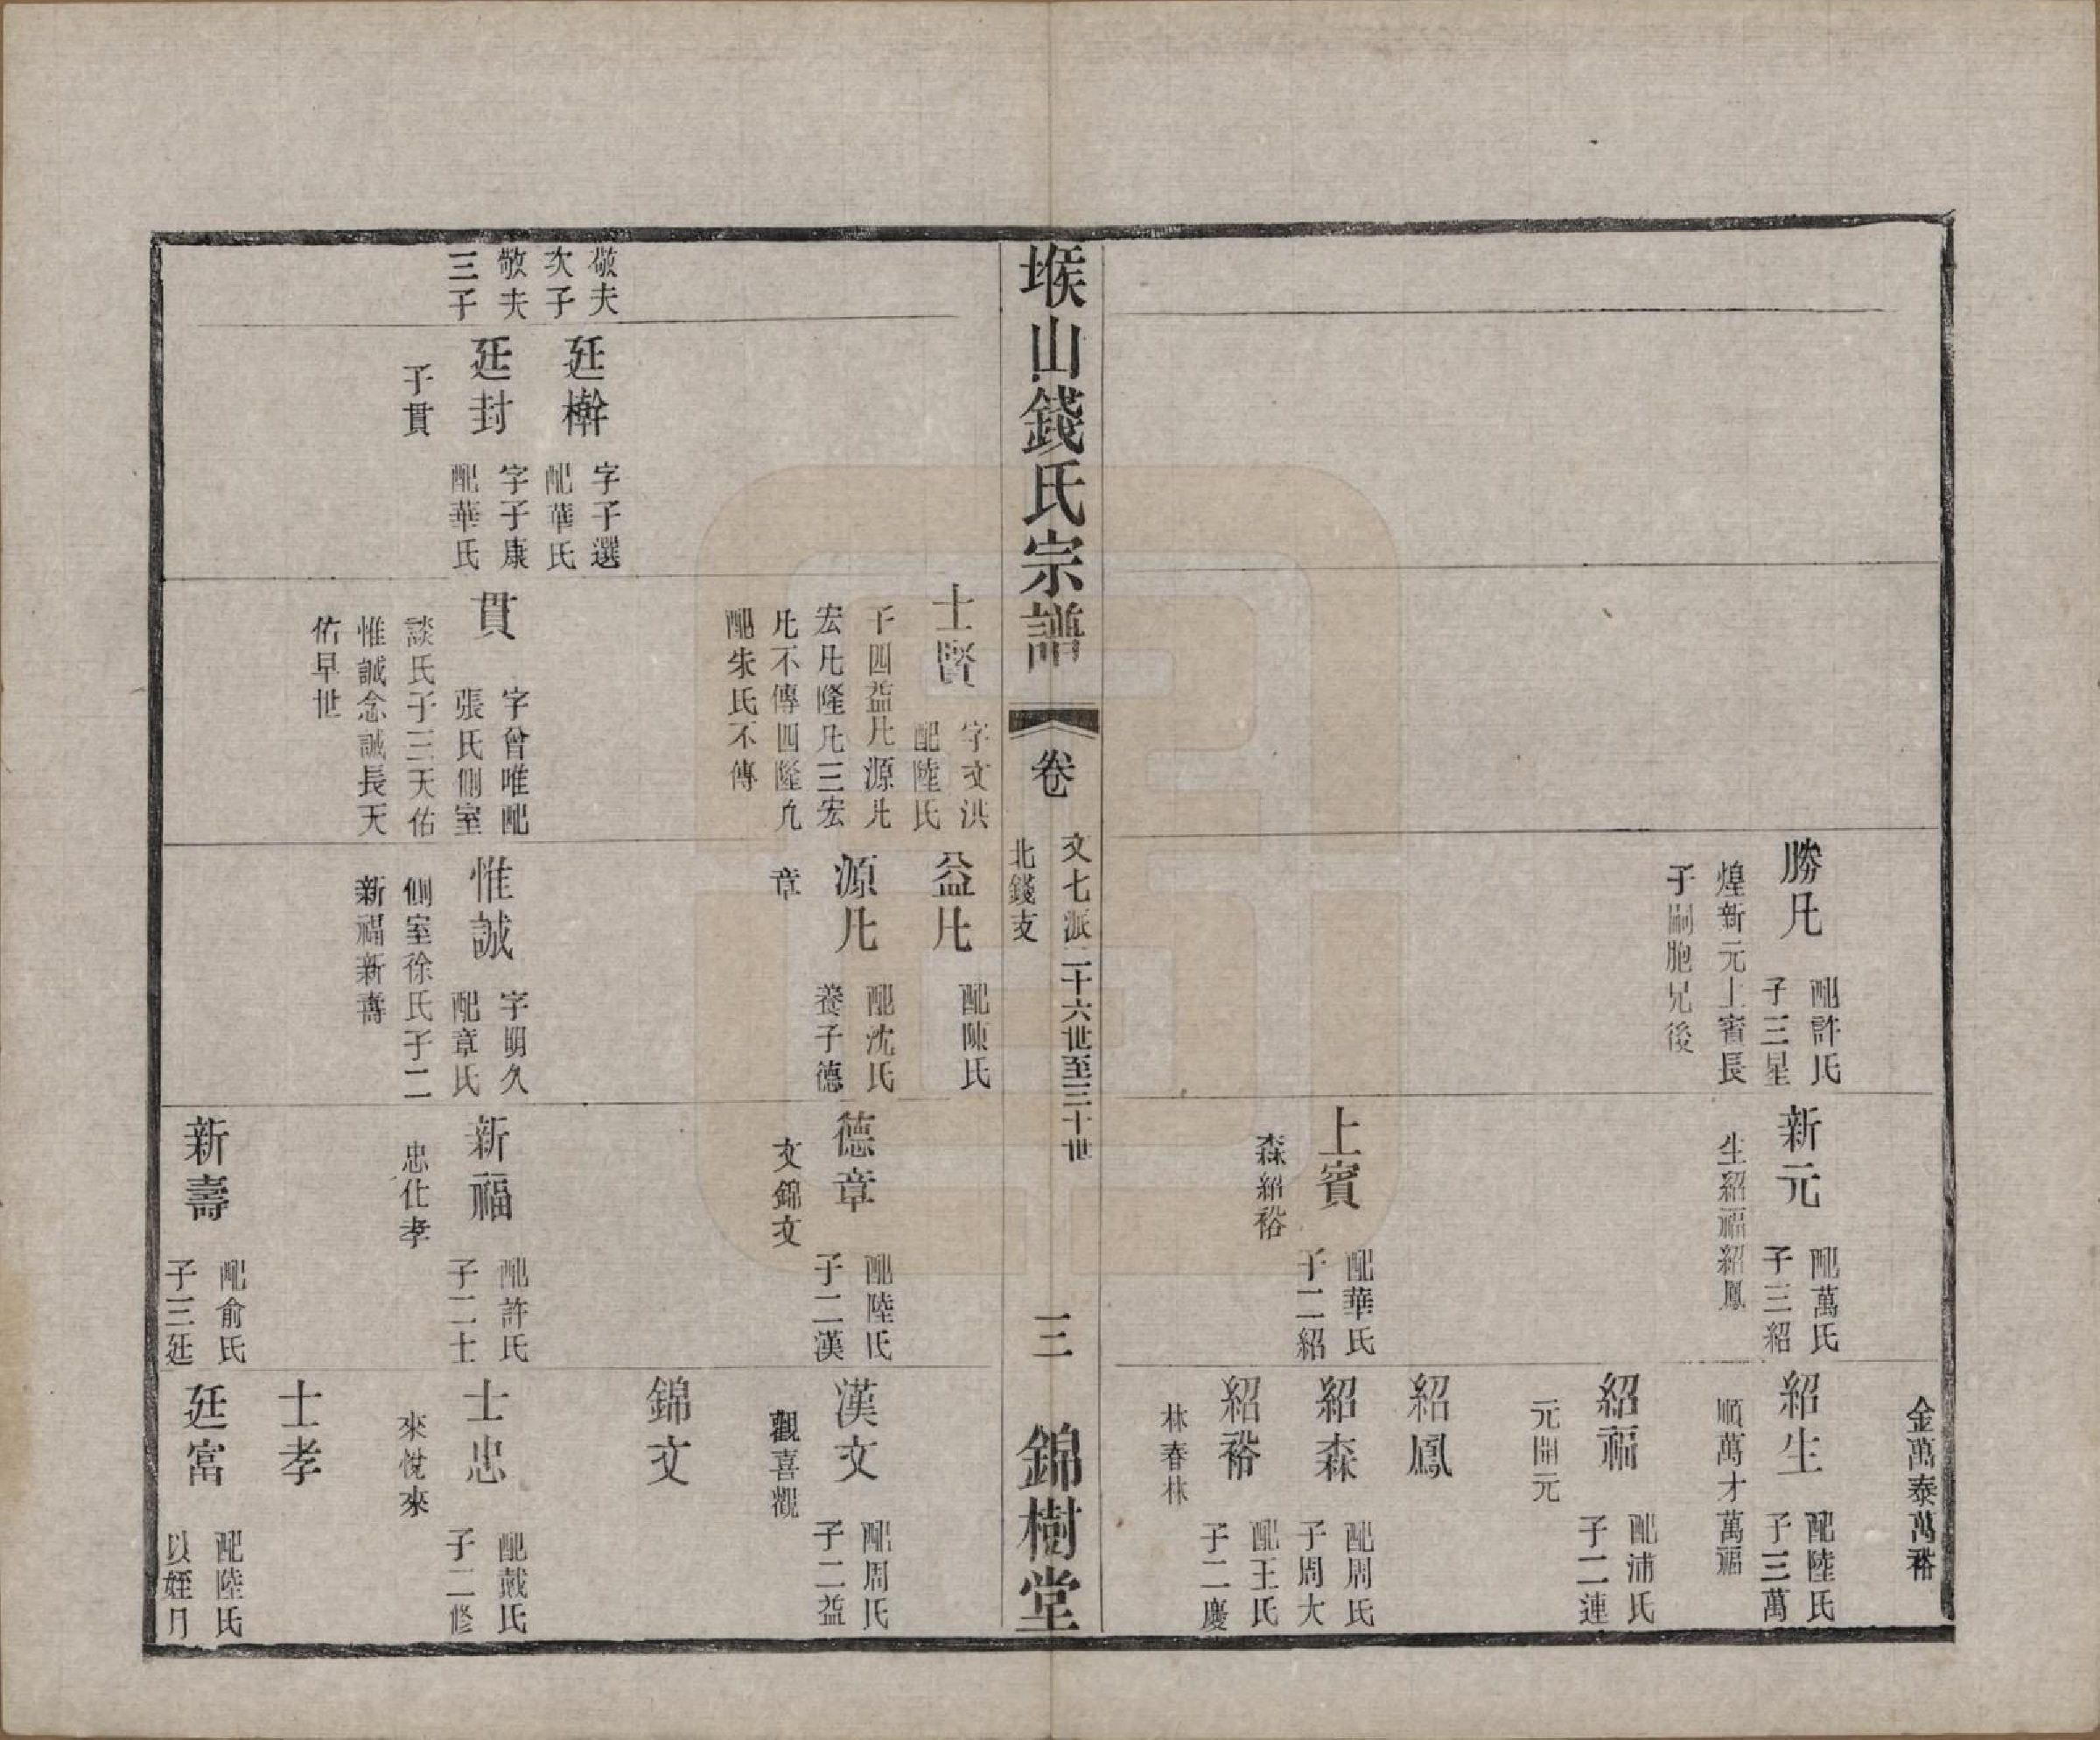 勝凡
配許氏
子三星
煌新元上賓長
子嗣胞兄後
新元
配萬氏
子三紹
生紹福紹鳳
上賓
配華氏
子二紹
森紹裕
金萬泰萬裕
紹生
配陸氏
子三萬
順萬才萬福
紹福
配浦氏
子二連
元開元
紹鳳
紹森
配周氏
子周大
紹裕
配王氏
子二慶
林春林
堠山錢氏宗譜
卷
文七派二十六世至三十世
北錢支
三
錦樹堂
敬夫
次子
敬夫
三子
廷檊
字子選
配華氏
廷封
字子康
配華氏
子貫
士賢
字文洪
配陸氏
子四益凡源凡
宏凡隆凡三宏
凡不傳四隆凡
配朱氏不傳
貫
字曾唯配
張氏側室
談氏子三天佑
惟誠念誠長天
佑早世
益凡
配陳氏
源凡
配沈氏
養子德
章
惟誠
字明久
配章氏
側室徐氏子二
新福新壽
德章
配陸氏
子二漢
文錦文
新福
配許氏
子二士
忠化孝
新壽
配俞氏
子三廷
漢文
配周氏
子二益
觀喜觀
錦文
士忠
配戴氏
子二修
來悅來
士孝
廷富
配陸氏
以姪月